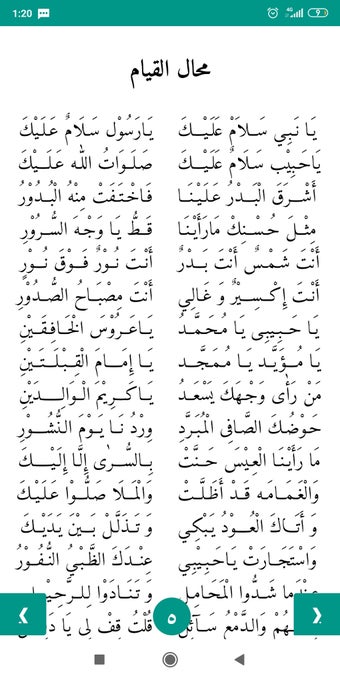 1:20 4G 9
محال القيام
يَا نَبِي سَلَامْ عَلَيْكَ يَارَسُوْل سَلَامٌ عَلَيْكَ
يَاحَبِيْب سَلَامٌ عَلَيْكَ صَلَوَاتُ الله عَلَيْكَ
أَشْرَقَ الْبَدْرُ عَلَيْنَا فَاخْتَفَتْ مِنْهُ الْبُدُوْرُ
مِثْلَ حُسْنِكْ مَارَأَيْنَا قَطُّ يَا وَجْهَ السُّرُوْرِ
أَنْتَ شَمْسٌ أَنْتَ بَدْرٌ أَنْتَ نُوْرٌ فَوْقَ نُوْرٍ
أَنْتَ إِكْسِيْرٌ وَ غَالِي أَنْتَ مِصْبَاحُ الصُّدُوْرِ
يَا حَبِيْبِى يَا مُحَمَّدُ يَاعَرُوْسَ الْخَافِقَيْنِ
يَا مُؤَيَّدْ يَا مُمَجَّدْ يَا إِمَامَ الْقِبْلَتَيْنِ
مَنْ رَأَى وَجْهَكَ يَسْعَدُ يَاكَرِيْمَ الْوَالِدَيْنِ
حَوْضُكَ الصَّافِي الْمُبَرَّدِ وِرْدُ نَا يَوْمَ النُّشُوْرِ
مَا رَأَيْنَا الْعِيْسَ حَنَّتْ بِالسُّرَى إِلَّا إِلَيْكَ
وَالْغَمَامَه قَدْ أَظَلَّتْ وَالْمَلَا صَلُّوْا عَلَيْكَ
وَ أَتَاكَ الْعُوْدُ يَبْكِي وَ تَذَلَّلَ بَيْنَ يَدَيْكَ
وَاسْتَجَارَتْ يَاحَبِيْبِي عِنْدَكَ الظَّبْيُ النُّفُوْرُ
شَدُّوا الْمَحَامِلَ وَ تَنَادَوْا
وَالدَّمْعُ سَآئِلْ قُلْتُ قِفْ لِى يَا
٥